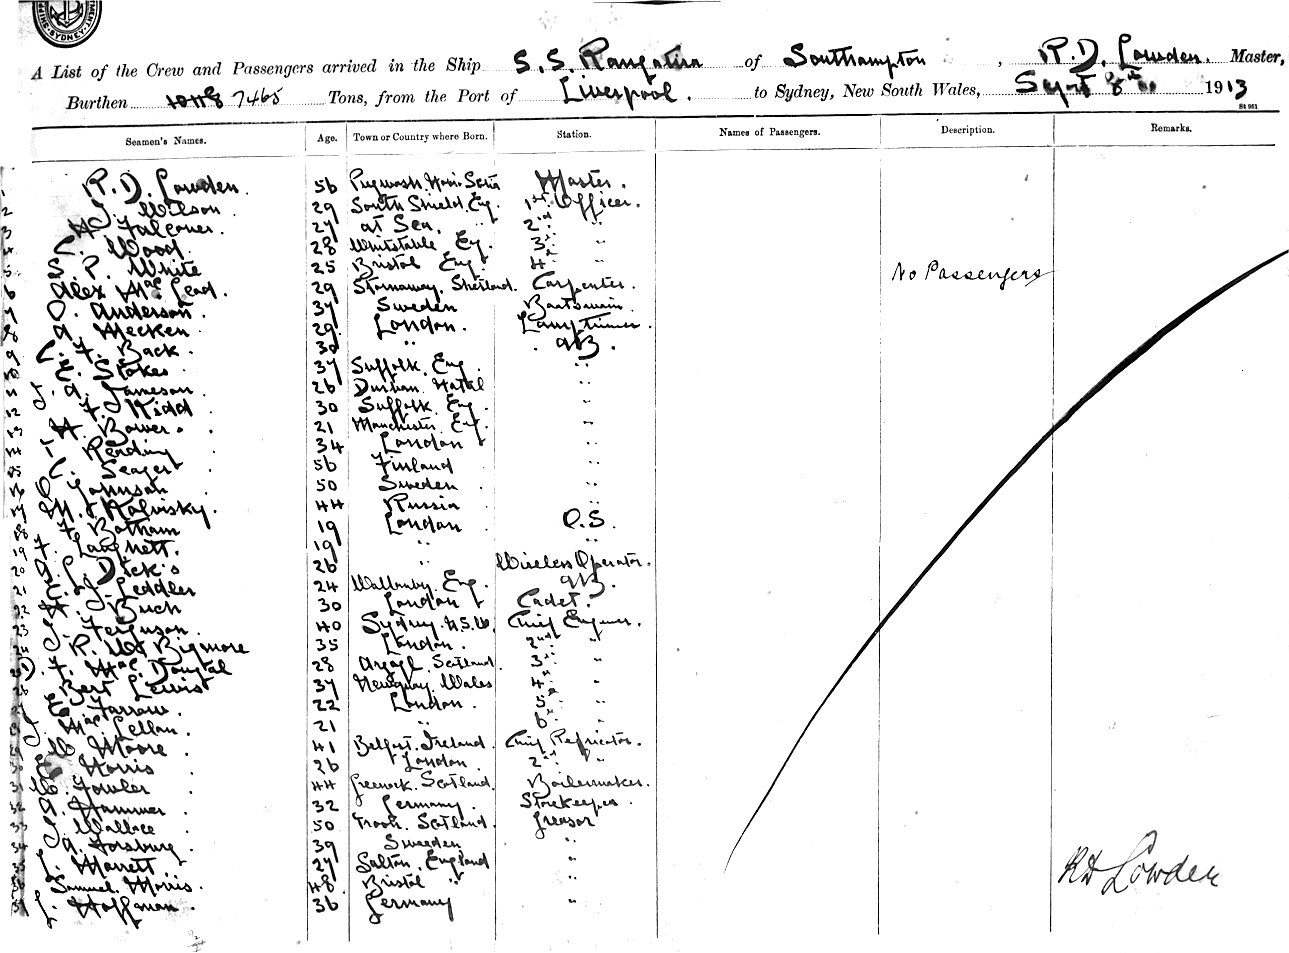 SYDNEY
A List of the Crew and Passengers arrived in the Ship S.S. Rangatira of Southampton, R. D. Lowden. Master,
Burthen 7465 Tons, from the Port of Liverpool. to Sydney, New South Wales, Sept 8th 1913
St 961
Seamen's Names. Age. Town or Country where Born. Station. Names of Passengers. Description. Remarks.
1 R. D. Lowden. 56 Pugwash Master.
2 J. Wilson. 29 South Shield Eng. 1st Officer.
3 Falconer. 27 at Sea. 2nd "
4 C. Wood 28 Whitstable Eng. 3rd "
5 S. P. White 25 Bristol Eng. 4th "
No Passengers
6 Alex Mac Lead. 29 Stornaway, Shetland. Carpenter.
7 O. Anderson. 37 Sweden Boatswain.
8 A. Mecken 29 London. Lamptrimmer.
9 Back. 30 " AB.
10 Stokes 37 Suffolk. Eng. "
11 J. A. Jameson. 26 Durban. Natal "
12 F. Kidd 30 Suffolk. Eng. "
13 H. Bower. 21 Manchester. Eng. "
14 T. Reading 34 London "
15 C. Seager 56 Finland "
16 Johnson 50 Sweden "
17 Kalvisky. 44 Russia "
18 F. Batham 19 London O.S.
19 F. 19 " "
20 Dick's 26 " Wireless Operator.
21 J. Leddler 24 Eng. AB.
22 H. Buch 30 London Cadet.
23 J. Ferguson. 40 Sydney. N.S.W. Chief Engineer.
24 R. W. Bigmore 35 London. 2nd "
25 D. F. Mac Dougal 28 Argyl. Scotland 3rd "
26 Bert Lewis 37 Newquay. Wales 4th "
27 W. Farrow. 22 London. 5th "
28 J. Mac Lellan. 21 " 6th "
29 W. Moore 41 Belfast. Ireland. Chief Refricator.
30 Norris 26 London. 2nd "
31 W. Fowler 44 Greenock. Scotland. Boilermaker.
32 A. Hammer 32 Germany. Storekeeper.
33 J. Wallace 50 Troon. Scotland. Greaser
34 A. Forsburg. 39 Sweeden "
35 L. Marrett. 27 Salton. England "
36 Samuel. Morris. 48 Bristol " "
37 J. Hoffman. 36 Germany "
RD Lowden